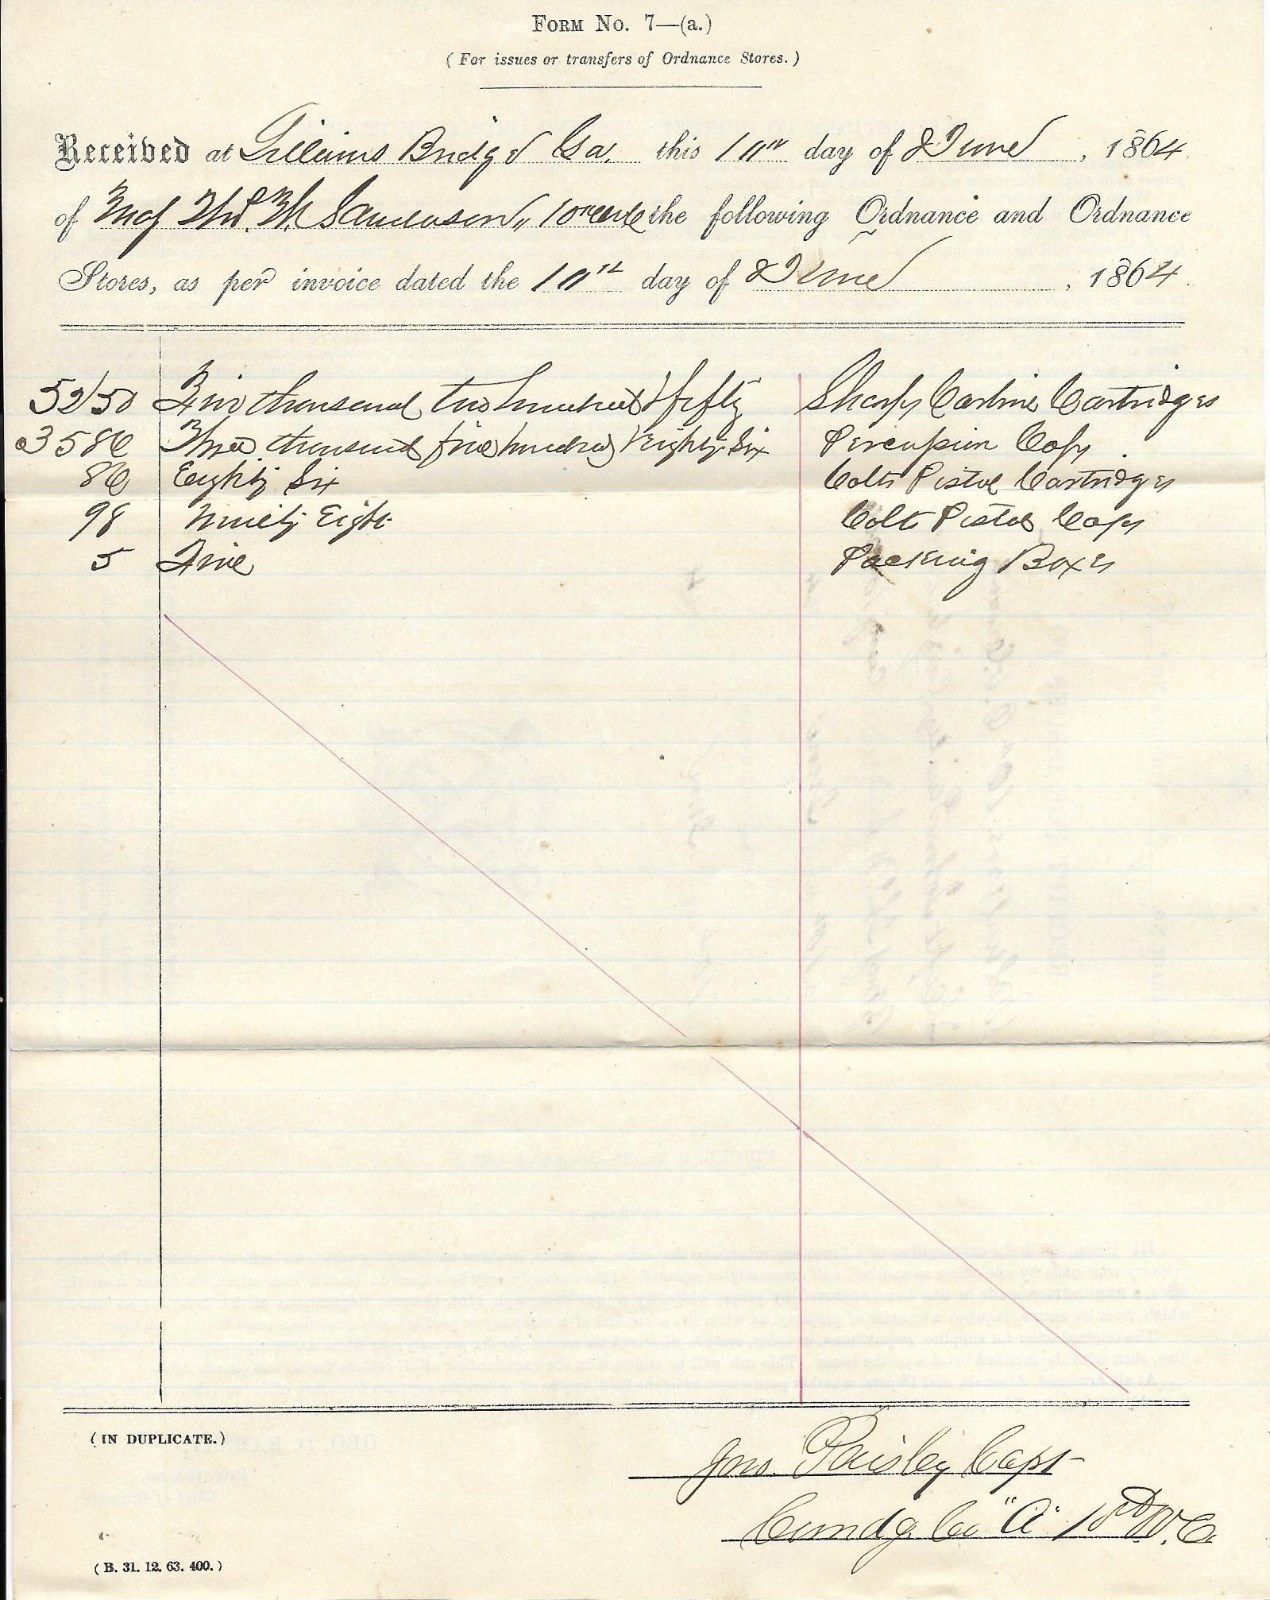 FORM No. 7—(a.)
( For issues or transfers of Ordnance Stores. )
Received at Gilliams Bridge Ga. this 10th day of June, 1864.
of Maj Thos. W. Sanderson, 10" the following Ordnance and Ordnance
Stores, as per invoice dated the 10th day of June, 1864.
5250 Five thousand two hundred & fifty Sharps Carbine Cartridges
3586 Three thousand five hundred & Eighty Six Percussion Caps
86 Eighty Six Colts Pistol Cartridges
98 Ninety Eight Colts Pistol Caps
5 Five Packing Boxes
( IN DUPLICATE.)
Jno. Paisley Capt
Comdg Co "A" 10th O.V.C.
( B. 31. 12. 63. 400. )